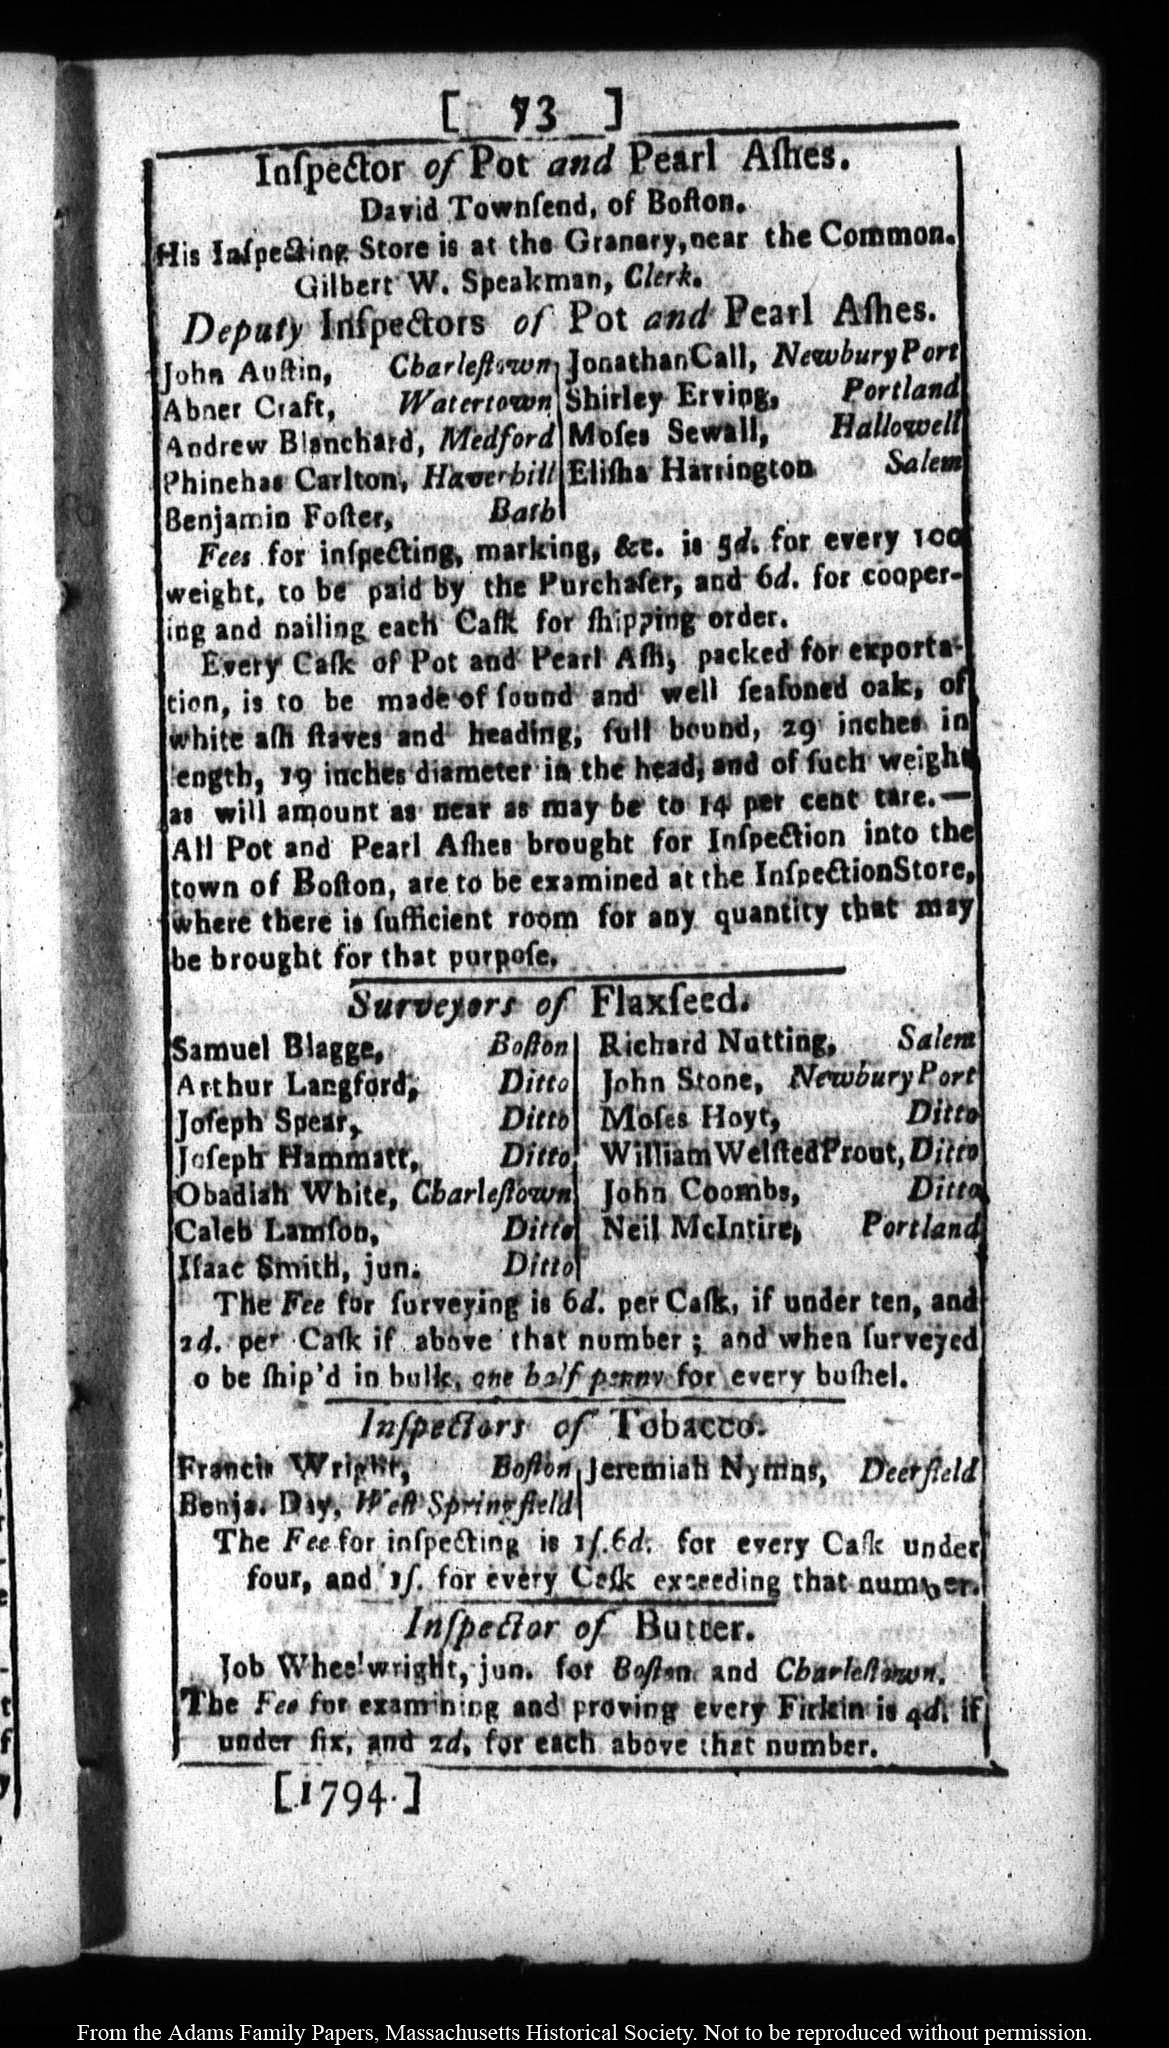 [ 73 ]
Inſpector of Pot and Pearl Aſhes.
David Townſend, of Boſton.
His Inſpecting Store is at the Granary, near the Common.
Gilbert W. Speakman, Clerk.
Deputy Inſpectors of Pot and Pearl Aſhes.
John Auſtin, Charleſtown Jonathan Call, Newbury Port
Abner Craft, Watertown Shirley Erving, Portland
Andrew Blanchard, Medford Moſes Sewall, Hallowell
Phinehas Carlton, Haverhill Eliſha Harrington Salem
Benjamin Foſter, Bath
Fees for inſpecting, marking, &c. is 5d. for every 100
weight, to be paid by the Purchaſer, and 6d. for cooper-
ing and nailing each Caſk for ſhipping order.
Every Caſk of Pot and Pearl Aſh, packed for exporta-
tion, is to be made of ſound and well ſeaſoned oak, of
white aſh ſtaves and heading, full bound, 29 inches in
ength, 19 inches diameter in the head, and of ſuch weight
as will amount as near as may be to 14 per cent tare.—
All Pot and Pearl Aſhes brought for Inſpection into the
town of Boſton, are to be examined at the Inſpection Store,
where there is ſufficient room for any quantity that may
be brought for that purpoſe.
Surveyors of Flaxſeed.
Samuel Blagge, Boſton Richard Nutting, Salem
Arthur Langford, Ditto John Stone, Newbury Port
Joſeph Spear, Ditto Moſes Hoyt, Ditto
Joſeph Hammatt, Ditto William Welſted Prout, Ditto
Obadiah White, Charleſtown John Coombs, Ditto
Caleb Lamſon, Ditto Neil McIntire, Portland
Iſaac Smith, jun. Ditto
The Fee for ſurveying is 6d. per Caſk, if under ten, and
2d. per Caſk if above that number; and when ſurveyed
o be ſhip'd in bulk, one half penny for every buſhel.
Inſpectors of Tobacco.
Francis Wright, Boſton Jeremiah Nymns, Deerfield
Benja. Day, Weſt Springfield
The Fee for inſpecting is 1ſ.6d. for every Caſk under
four, and 1ſ. for every Caſk exceeding that number.
Inſpector of Butter.
Job Wheelwright, jun. for Boſton and Charleſtown.
The Fee for examining and proving every Firkin is 4d. if
under ſix, and 2d. for each above that number.
[1794.]
From the Adams Family Papers, Massachusetts Historical Society. Not to be reproduced without permission.